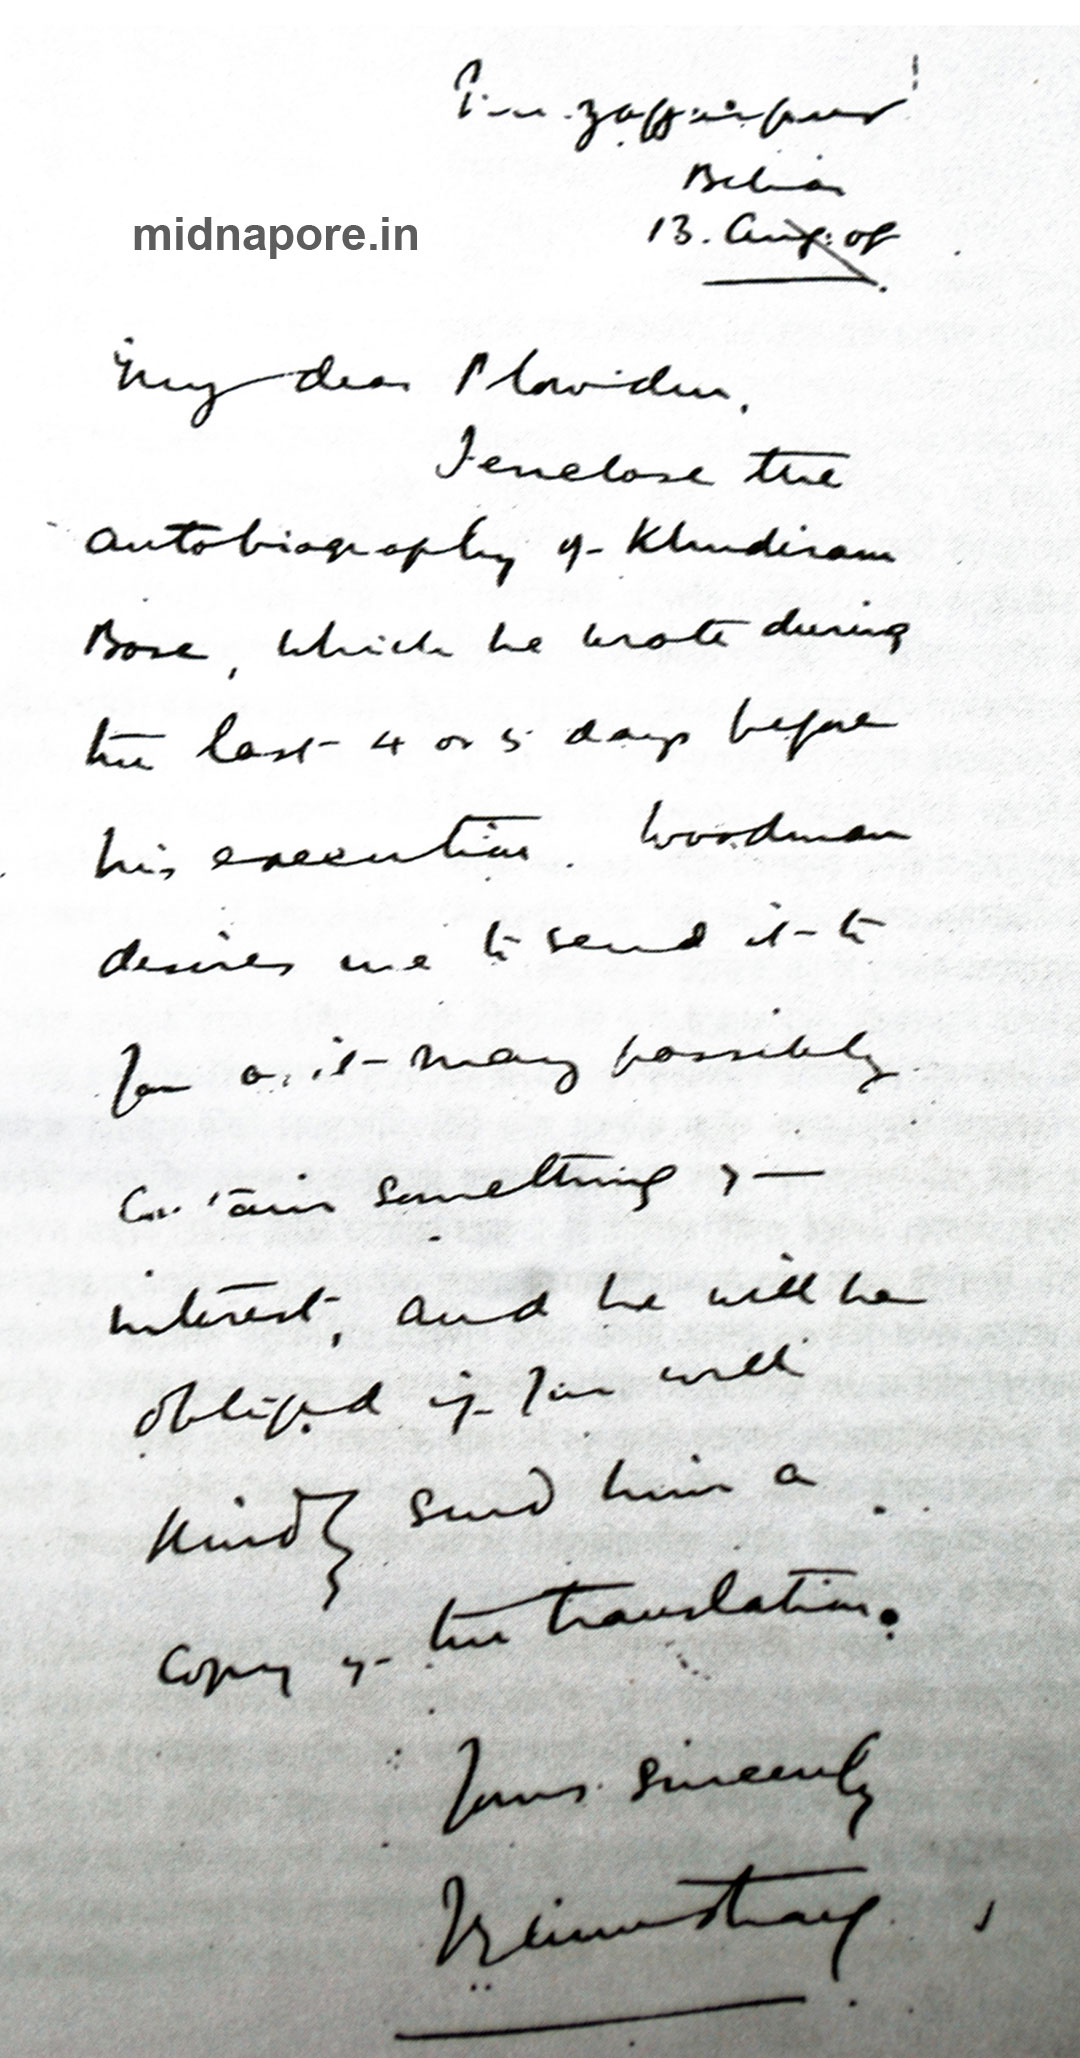 Muzaffarpur
Behar
midnapore.in
13. Aug. 08
My dear Plowden,
I enclose the
autobiography of Khudiram
Bose, which he wrote during
the last 4 or 5 days before
his execution. Woodman
desires me to send it to
you as it may possibly
contain something of
interest, and he will be
obliged if you will
kindly send him a
copy of the translation.
Yours sincerely